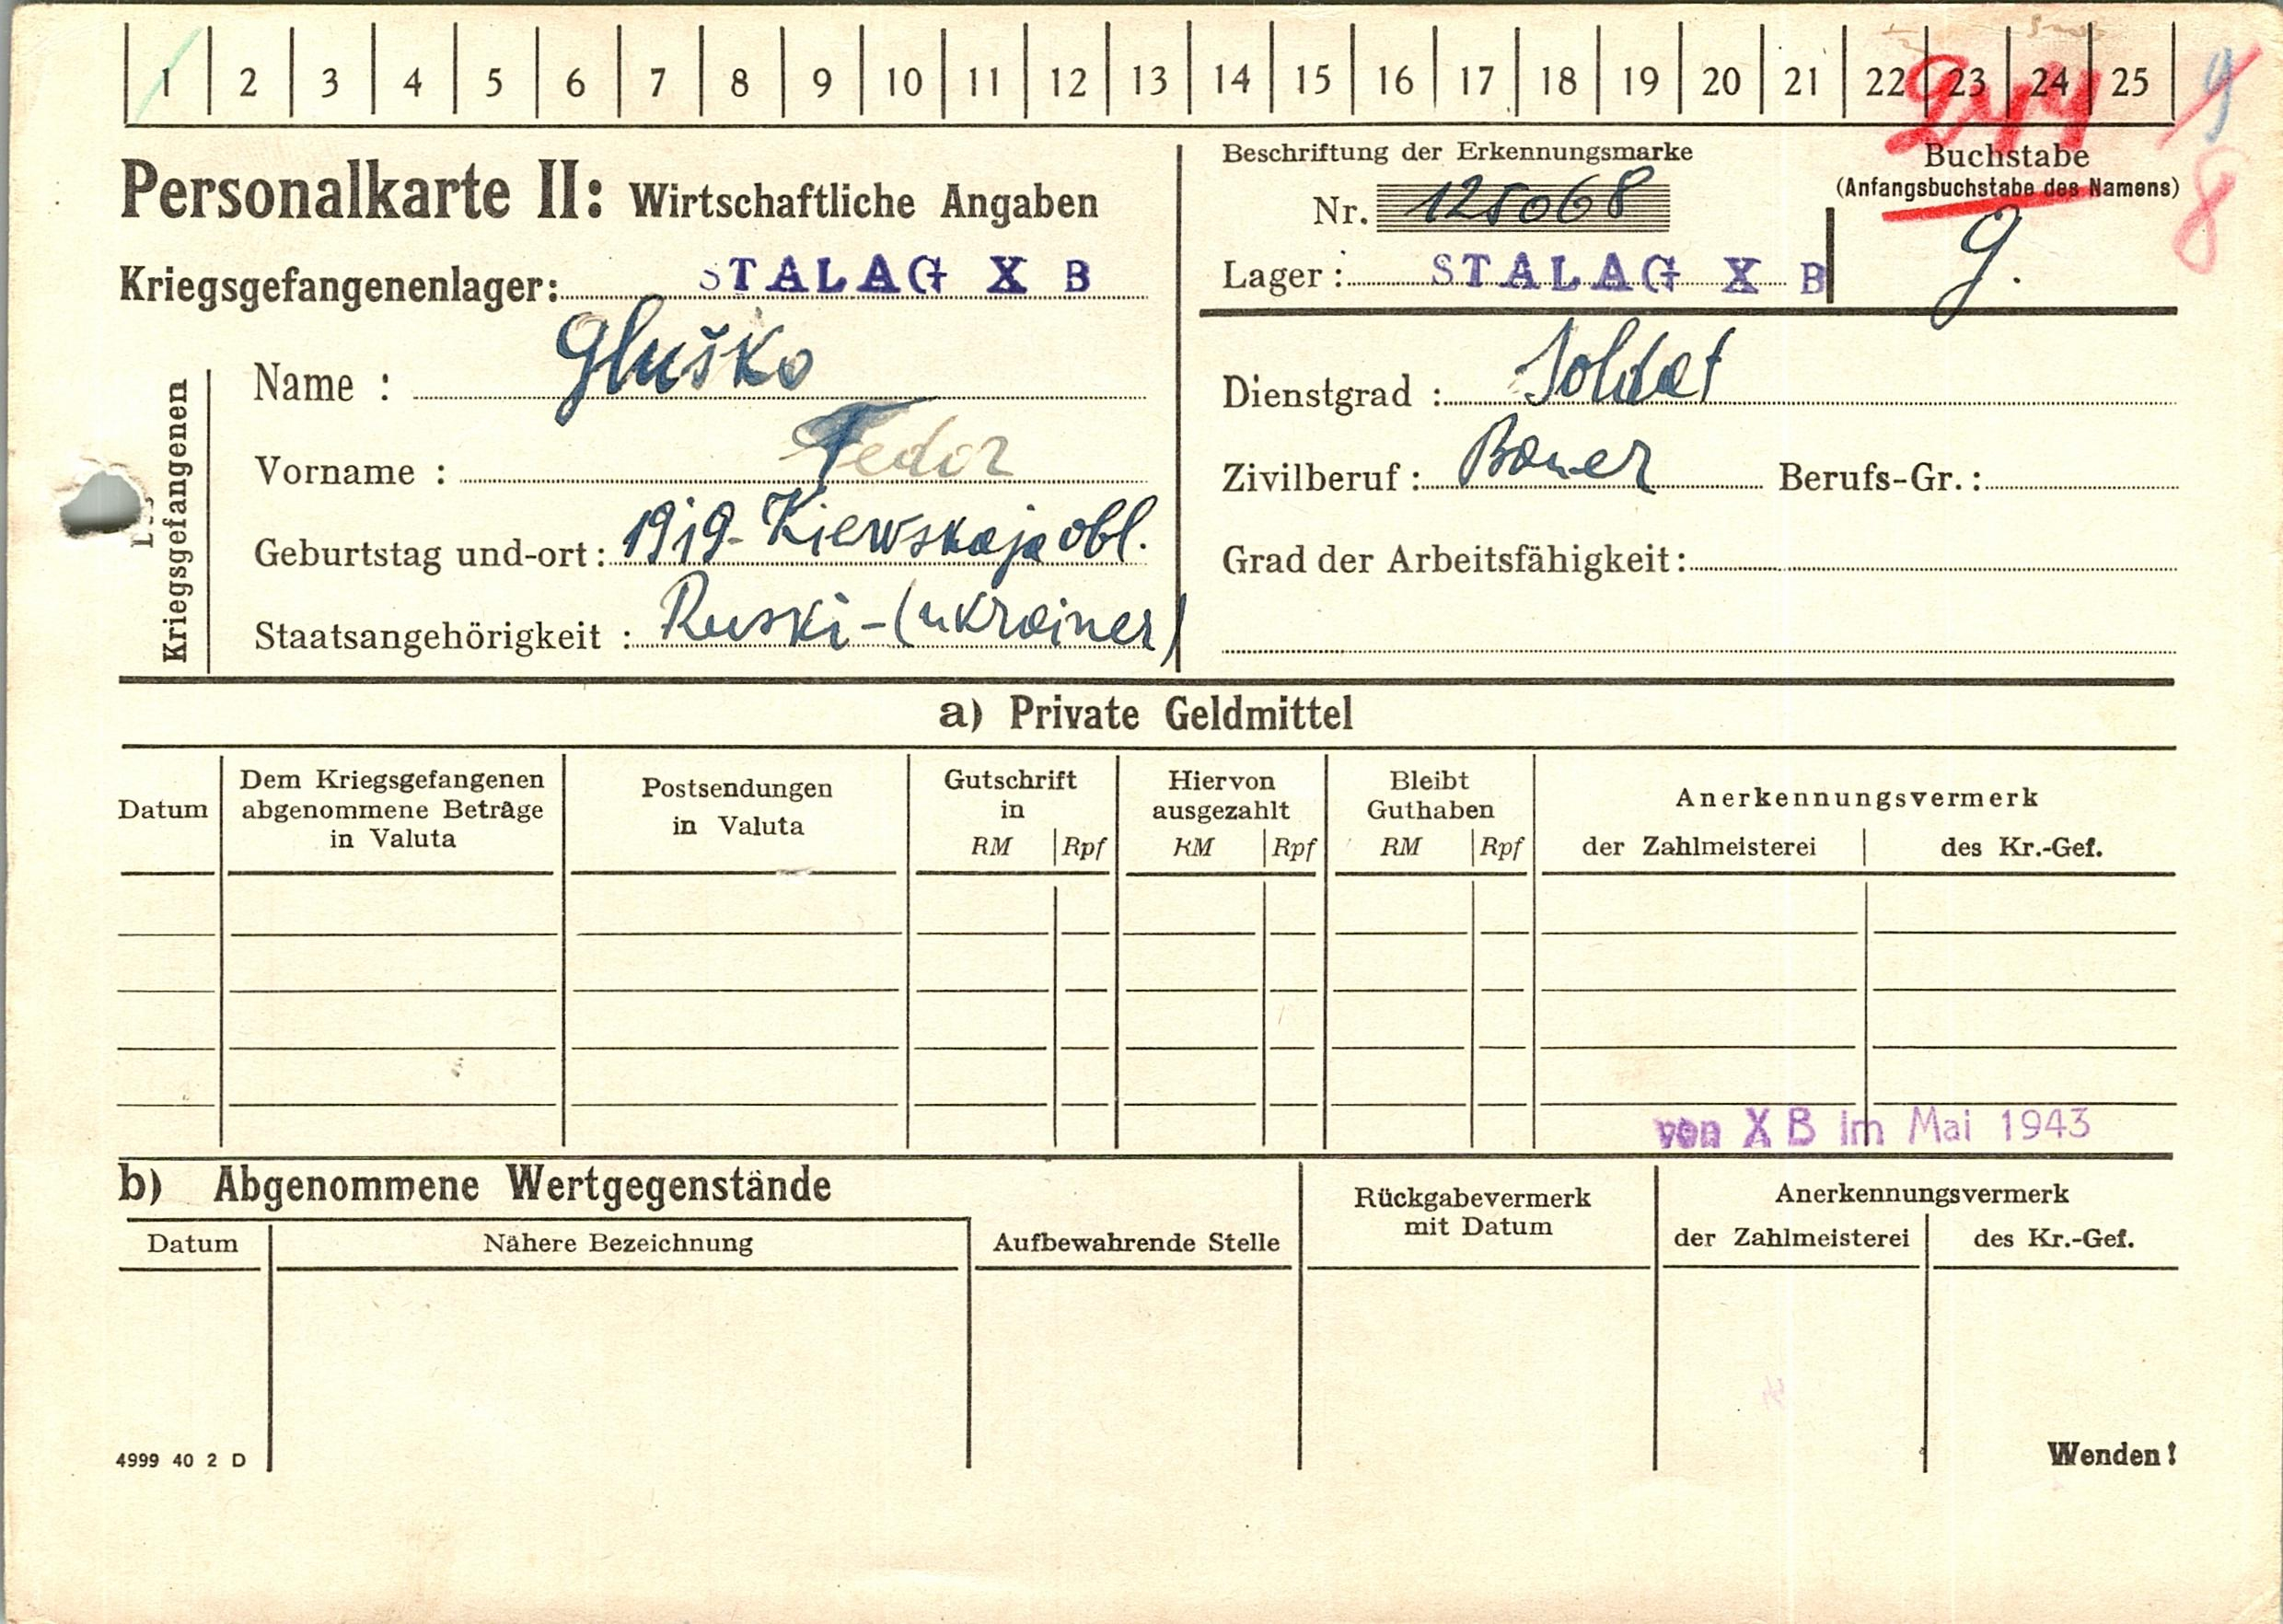 1 2 3 4 5 6 7 8 9 10 11 12 13 14 15 16 17 18 19 20 21 22 23 24 25
9
8
Personalkarte II: Wirtschaftliche Angaben
Kriegsgefangenenlager: STALAG X B
Beschriftung der Erkennungsmarke
Nr. 125068
Lager: STALAG X B
Buchstabe
(Anfangsbuchstabe des Namens)
G.
Kriegsgefangenen
Name : Gluško
Vorname : Fedor
Geburtstag und-ort: 1919- Kiewskaja obl.
Staatsangehörigkeit : Ruski-(ukrainer)
Dienstgrad : Soldat
Zivilberuf: Bauer Berufs-Gr.:
Grad der Arbeitsfähigkeit:
a) Private Geldmittel
Datum
Dem Kriegsgefangenen
abgenommene Beträge
in Valuta
Postsendungen
in Valuta
Gutschrift
in
RM Rpf
Hiervon
ausgezahlt
RM Rpf
Bleibt
Guthaben
RM Rpf
Anerkennungsvermerk
der Zahlmeisterei des Kr.-Gef.
von X B im Mai 1943
b) Abgenommene Wertgegenstände
Datum Nähere Bezeichnung Aufbewahrende Stelle
Rückgabevermerk
mit Datum
Anerkennungsvermerk
der Zahlmeisterei des Kr.-Gef.
4999 40 2 D
Wenden!